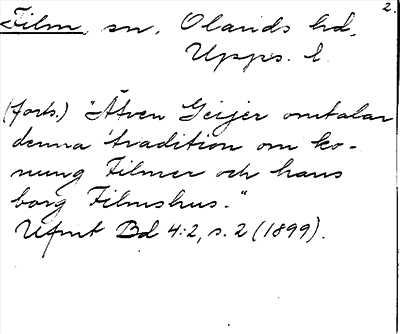 2.
Film, sn, Olands hd,
Upps. l.
(forts.) "Även Geijer omtalar
denna tradition om ko-
nung Filmer och hans
borg Filmshus."
Ufmt Bd 4:2, s. 2 (1899).